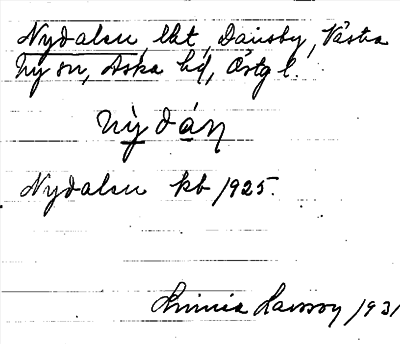 Nydalen, lht, Dansby, Västra
Ny sn, Aska hd, Östg l.
nỳdán
Nydalen kb 1925.
Linnea Larsson 1931